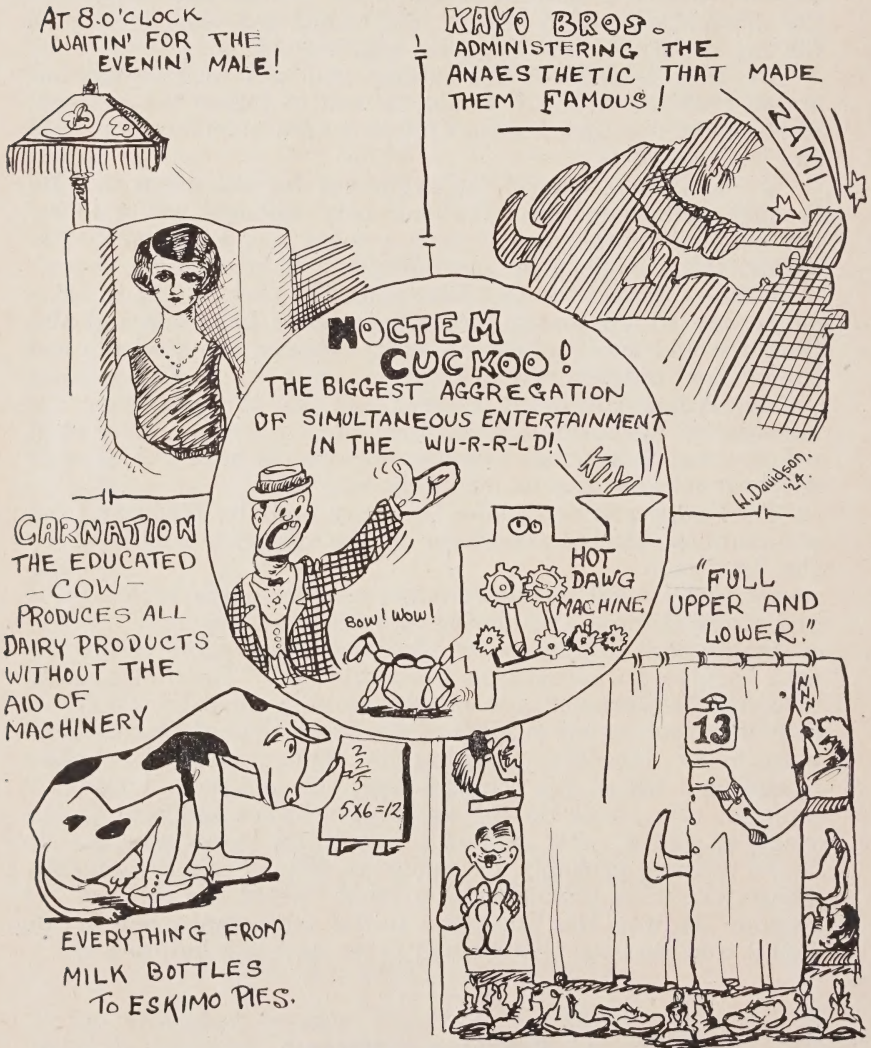 AT 8.O'CLOCK
WAITIN' FOR THE
EVENIN' MALE!
KAYO BROS.
ADMINISTERING THE
ANAESTHETIC THAT MADE
THEM FAMOUS!
ZAM!
NOCTEM
CUCKOO!
THE BIGGEST AGGREGATION
OF SIMULTANEOUS ENTERTAINMENT
IN THE WU-R-R-LD!
W. Davidson.
'24.
BOW! WOW!
HOT
DAWG
MACHINE
CARNATION
THE EDUCATED
-COW-
PRODUCES ALL
DAIRY PRODUCTS
WITHOUT THE
AID OF
MACHINERY
2
2
5
5X6=12
EVERYTHING FROM
MILK BOTTLES
TO ESKIMO PIES.
"FULL
UPPER AND
LOWER."
13
ZZZ